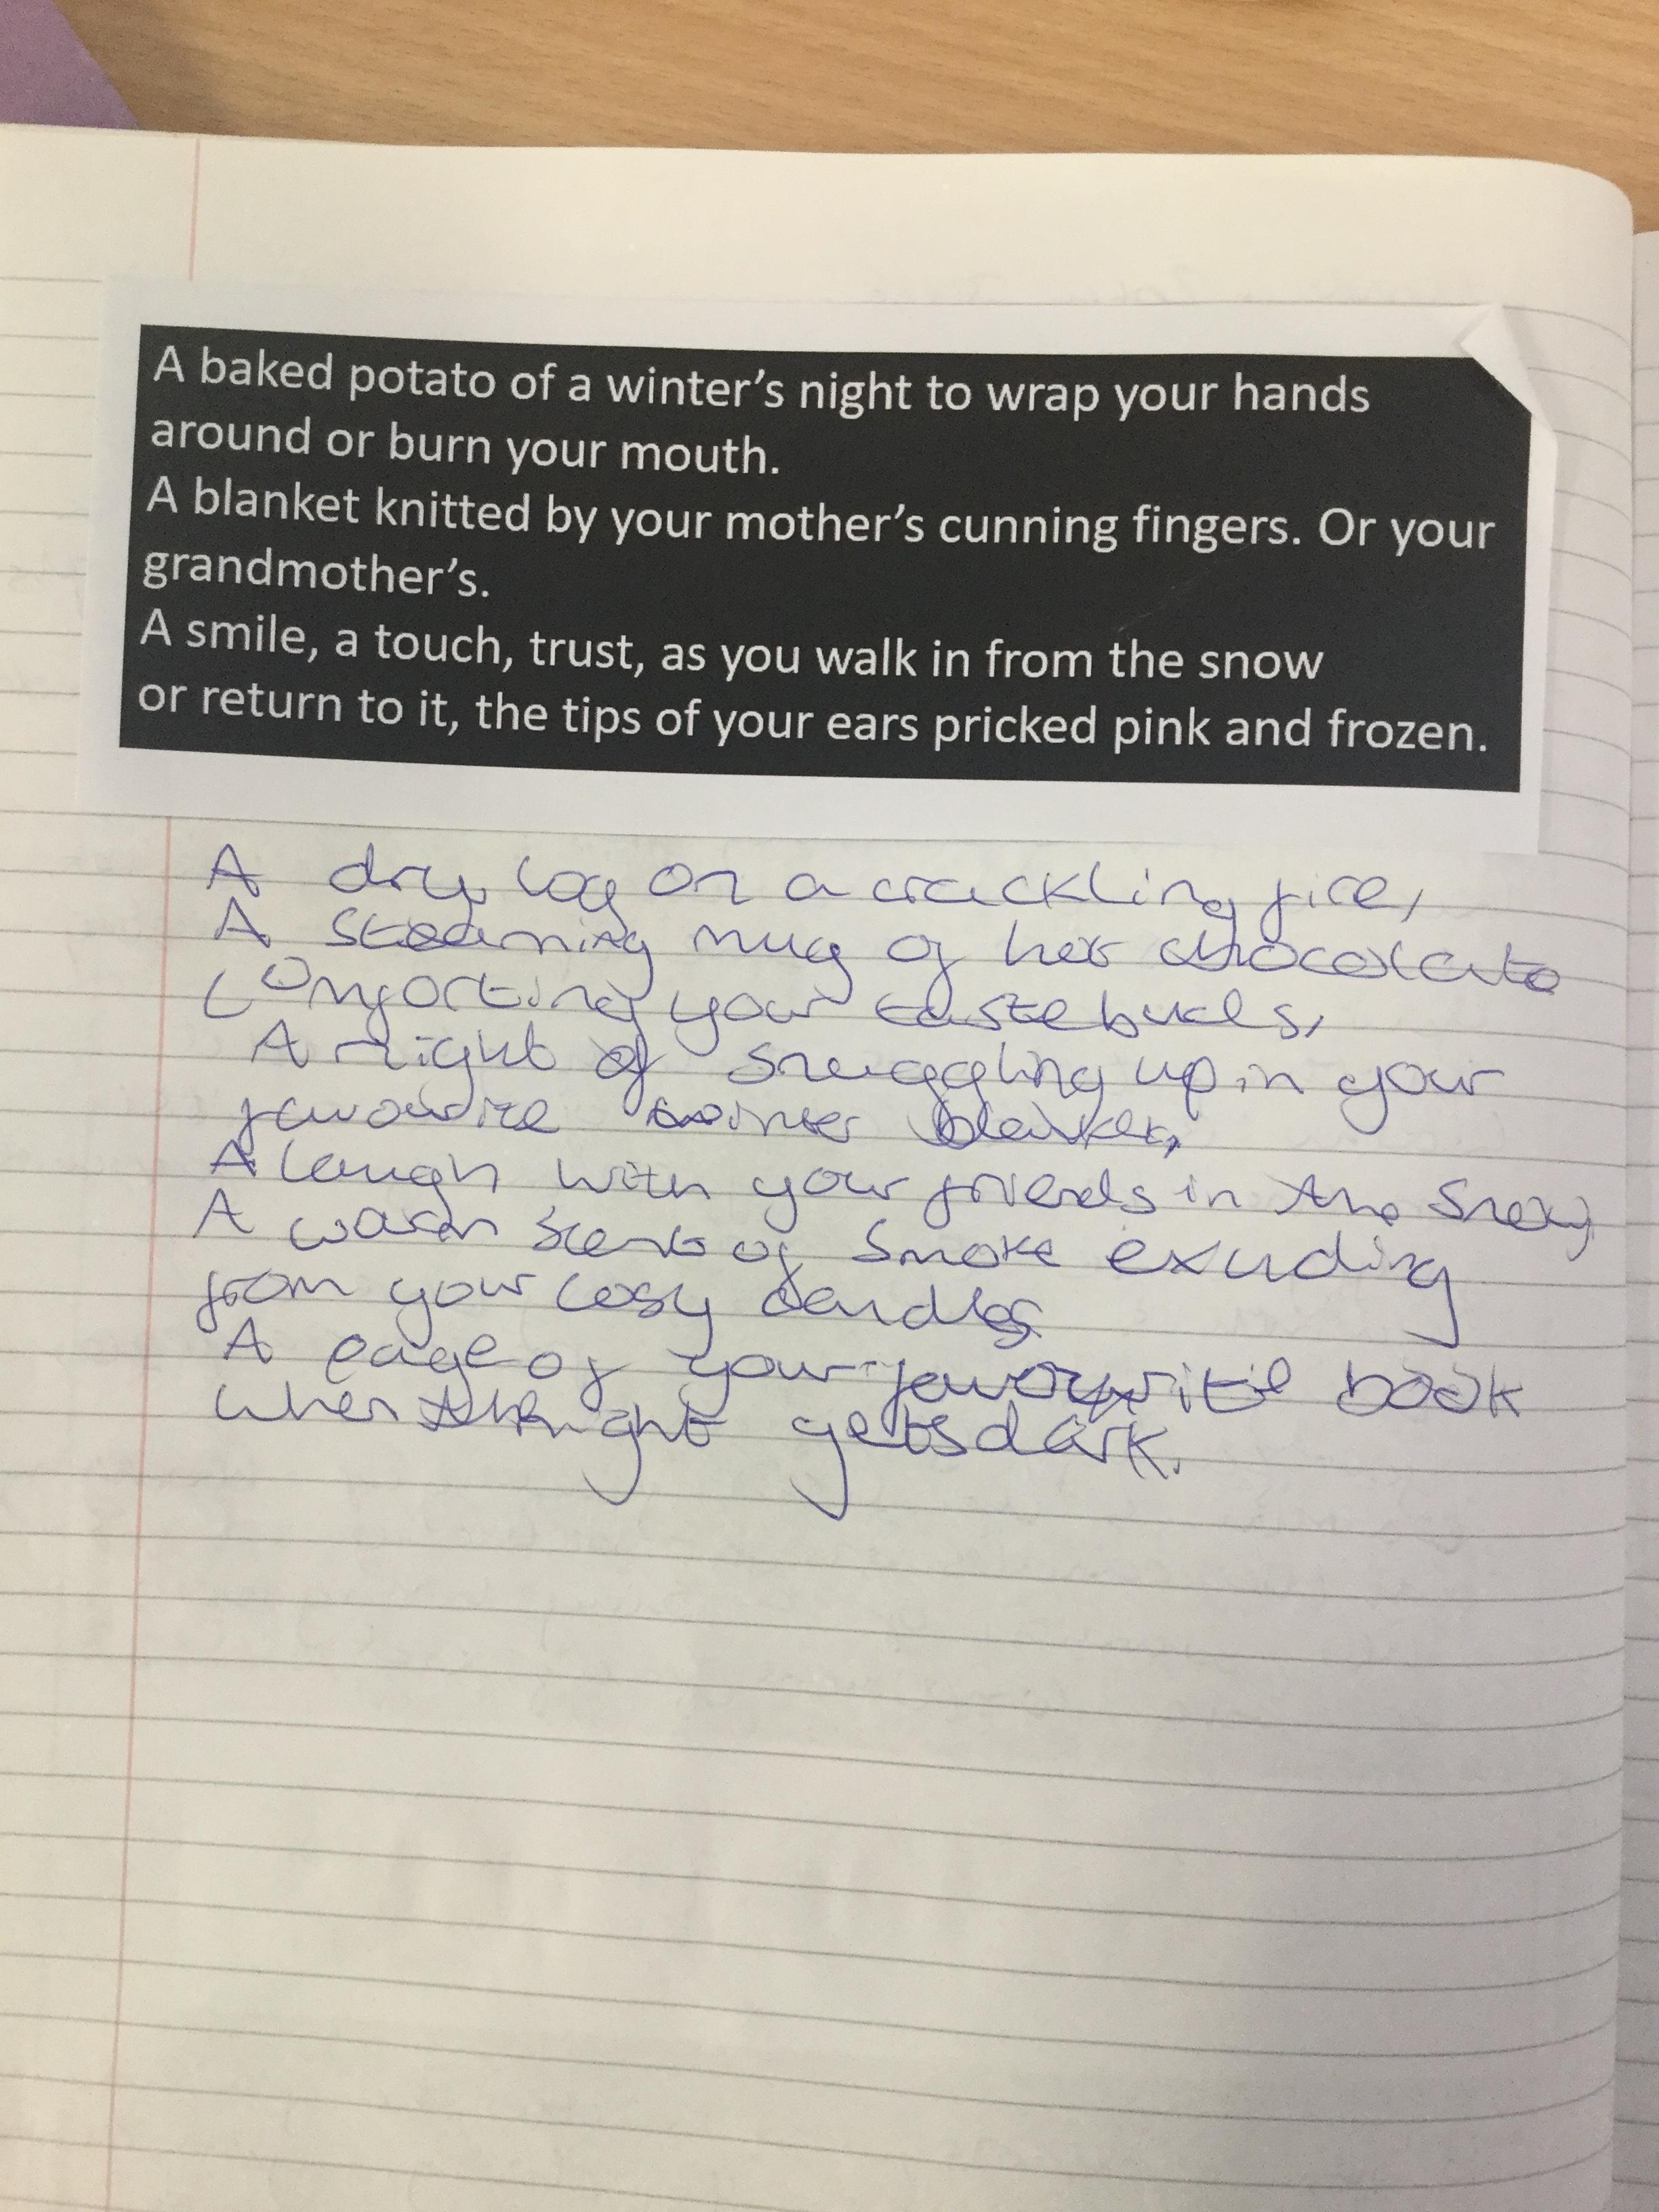 A baked potato of a winter's night to wrap your hands
around or burn your mouth.
A blanket knitted by your mother's cunning fingers. Or your
grandmother's.
A smile, a touch, trust, as you walk in from the snow
or return to it, the tips of your ears pricked pink and frozen.
A dry log on a crackling fire,
A steaming mug of hot chocolate
comforting your tastebuds,
A night of snuggling up in your
favourite winter blanket,
A laugh with your friends in the snow,
A warm scent of smoke exuding
from your cosy candles
A page of your favourite book
when the night gets dark.